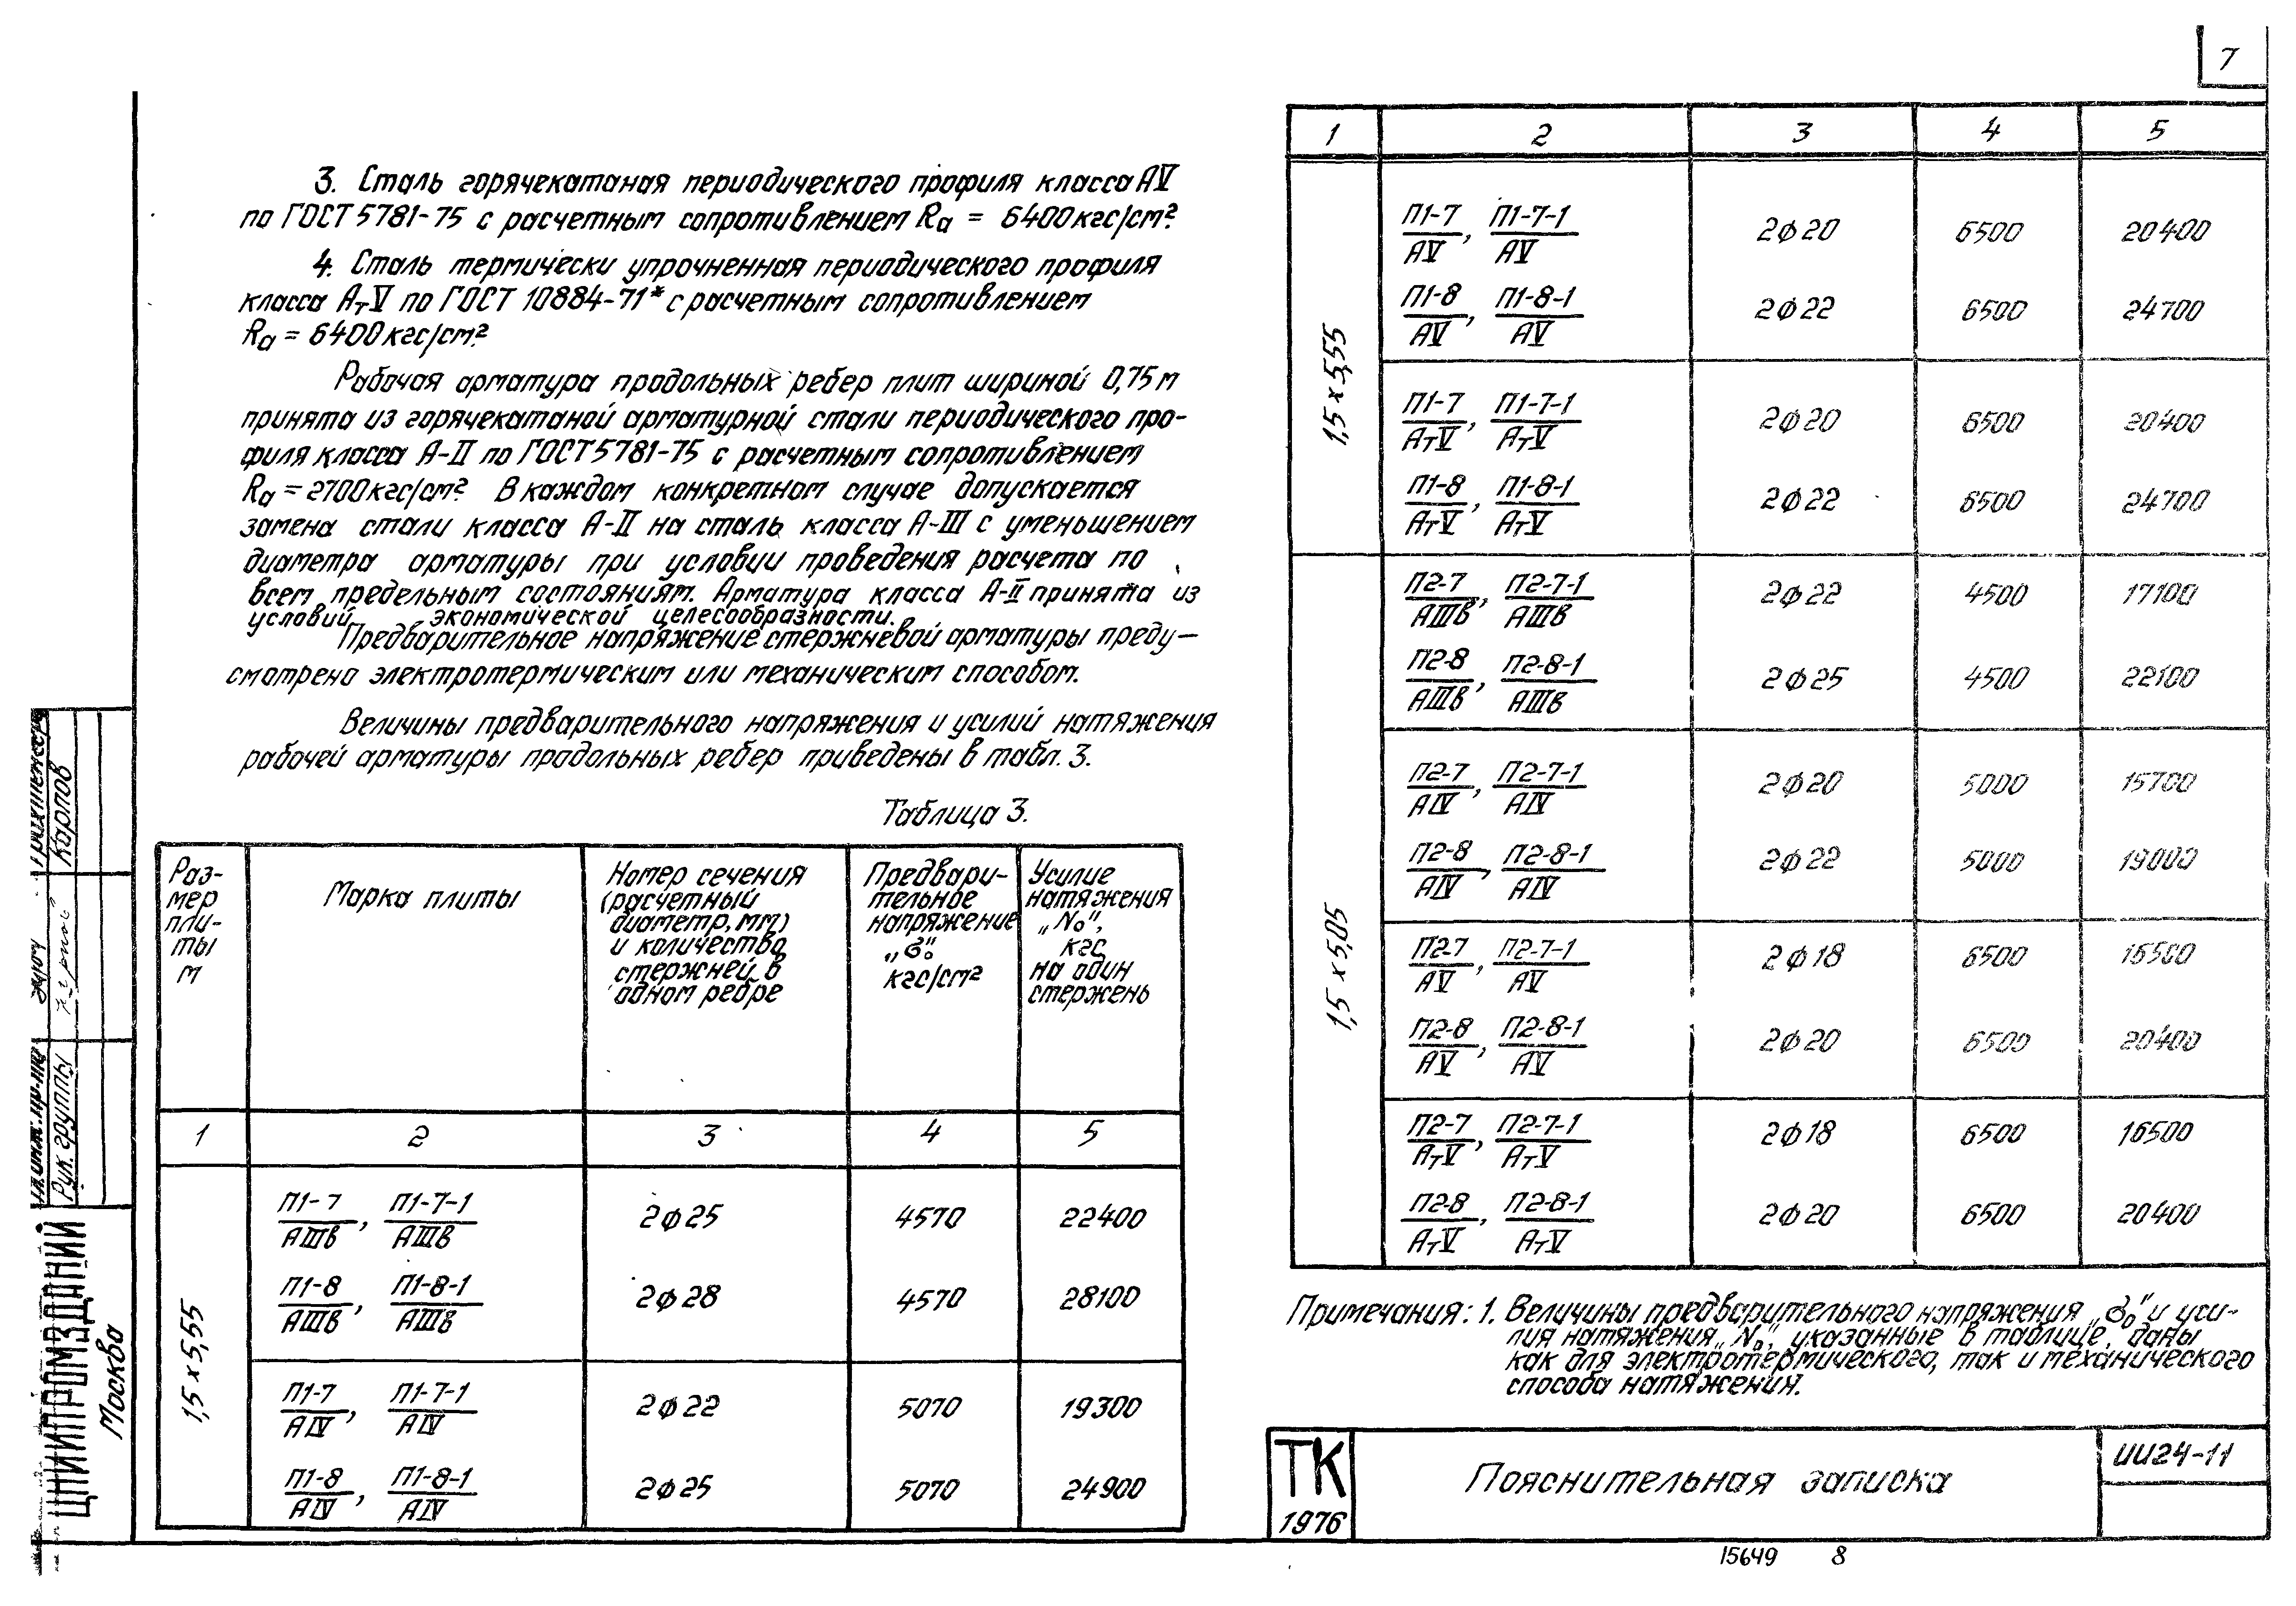 7
3. Сталь горячекатаная периодического профиля класса АV
по ГОСТ 5781-75 с расчетным сопротивлением Rа = 6400 кгс/см².
4. Сталь термически упрочненная периодического профиля
класса АтV по ГОСТ 10884-71* с расчетным сопротивлением
Rа = 6400 кгс/см².
Рабочая арматура продольных ребер плит шириной 0,75 м
принята из горячекатаной арматурной стали периодического про-
филя класса А-II по ГОСТ 5781-75 с расчетным сопротивлением
Rа = 2700 кгс/см². В каждом конкретном случае допускается
замена стали класса А-II на сталь класса А-III с уменьшением
диаметра арматуры при условии проведения расчета по
всем предельным состояниям. Арматура класса А-II принята из
условий экономической целесообразности.
Предварительное напряжение стержневой арматуры преду-
смотрено электротермическим или механическим способом.
Величины предварительного напряжения и усилий натяжения
рабочей арматуры продольных ребер приведены в табл. 3.
Таблица 3.
Раз-
мер
пли-
ты
м
Марка плиты
Номер сечения
(расчетный
диаметр, мм)
и количество
стержней в
одном ребре
Предвари-
тельное
напряжение
„σ₀"
кгс/см²
Усилие
натяжения
„N₀",
кгс
на один
стержень
1 2 3 4 5
1,5 х 5,55
П1-7/АIIIв, П1-7-1/АIIIв 2ф25 4570 22400
П1-8/АIIIв, П1-8-1/АIIIв 2ф28 4570 28100
П1-7/АIV, П1-7-1/АIV 2ф22 5070 19300
П1-8/АIV, П1-8-1/АIV 2ф25 5070 24900
1 2 3 4 5
1,5 х 5,55
П1-7/АV, П1-7-1/АV 2ф20 6500 20400
П1-8/АV, П1-8-1/АV 2ф22 6500 24700
П1-7/АтV, П1-7-1/АтV 2ф20 6500 20400
П1-8/АтV, П1-8-1/АтV 2ф22 6500 24700
1,5 х 5,05
П2-7/АIIIв, П2-7-1/АIIIв 2ф22 4500 17100
П2-8/АIIIв, П2-8-1/АIIIв 2ф25 4500 22100
П2-7/АIV, П2-7-1/АIV 2ф20 5000 15700
П2-8/АIV, П2-8-1/АIV 2ф22 5000 19000
П2-7/АV, П2-7-1/АV 2ф18 6500 16500
П2-8/АV, П2-8-1/АV 2ф20 6500 20400
П2-7/АтV, П2-7-1/АтV 2ф18 6500 16500
П2-8/АтV, П2-8-1/АтV 2ф20 6500 20400
Примечания: 1. Величины предварительного напряжения „σ₀" и уси-
лия натяжения „N₀", указанные в таблице, даны
как для электротермического, так и механического
способа натяжения.
ТК
1976
Пояснительная записка
ИИ24-11
15649 8
Рук. группы
Карпов
ЦНИИПРОМЗДАНИЙ
Москва